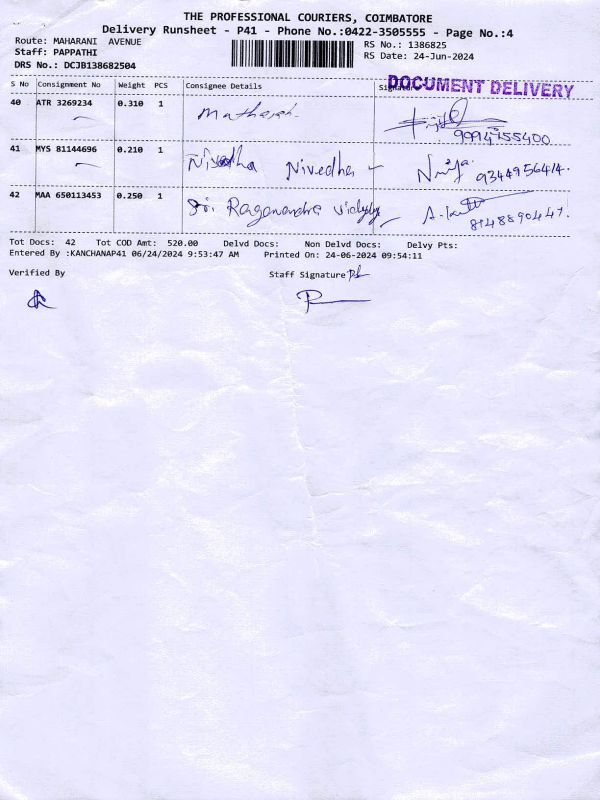 THE PROFESSIONAL COURIERS, COIMBATORE
Delivery Runsheet - P41 - Phone No.:0422-3505555 - Page No.:4
Route: MAHARANI AVENUE
RS No.: 1386825
Staff: PAPPATHI
RS Date: 24-Jun-2024
DRS No.: DCJB138682504
DOCUMENT DELIVERY
S No Consignment No Weight PCS Consignee Details Signature
40 ATR 3269234 0.310 1
41 MYS 81144696 0.210 1 Nivedha Nivedha 9344956414.
42 MAA 650113453 0.250 1 Sri Raganandra 8148890447.
Tot Docs: 42 Tot COD Amt: 520.00 Delvd Docs: Non Delvd Docs: Delvy Pts:
Entered By :KANCHANAP41 06/24/2024 9:53:47 AM Printed On: 24-06-2024 09:54:11
Verified By Staff Signature